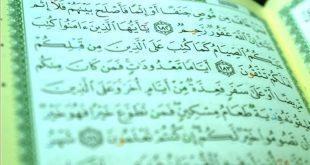 مُوصٍ جَنَفًا أَوْ إِثْمًا فَأَصْلَحَ بَيْنَهُمْ فَلَا إِثْمَ
غَفُورٌ رَّحِيمٌ ﴿١٨٢﴾ يَا أَيُّهَا الَّذِينَ آمَنُوا كُتِبَ
الصِّيَامُ كَمَا كُتِبَ عَلَى الَّذِينَ مِن قَبْلِكُمْ
﴿١٨٣﴾ أَيَّامًا مَّعْدُودَاتٍ فَمَن كَانَ مِنكُم
عَلَىٰ سَفَرٍ فَعِدَّةٌ مِّنْ أَيَّامٍ أُخَرَ وَعَلَى الَّذِينَ
طَعَامُ مِسْكِينٍ فَمَن تَطَوَّعَ خَيْرًا فَهُوَ خَيْرٌ
تَصُومُوا خَيْرٌ لَّكُمْ إِن كُنتُمْ تَعْلَمُونَ ﴿١٨٤﴾ شَهْرُ